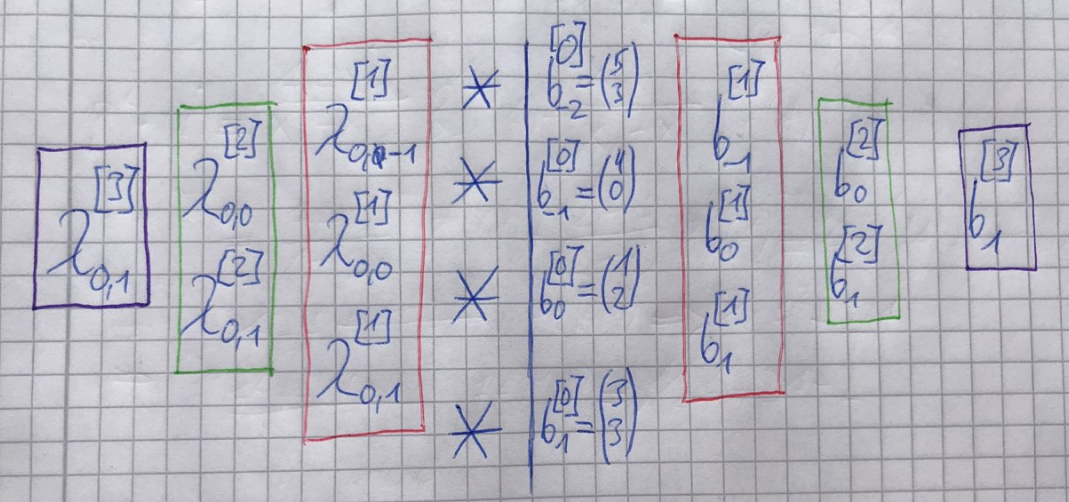 λ_{0,1}^{[3]}
λ_{0,0}^{[2]}
λ_{0,1}^{[2]}
λ_{0,-1}^{[1]}
λ_{0,0}^{[1]}
λ_{0,1}^{[1]}
*
*
*
*
b_{-2}^{[0]} = (5 3)
b_{-1}^{[0]} = (4 0)
b_0^{[0]} = (1 2)
b_1^{[0]} = (3 3)
b_{-1}^{[1]}
b_0^{[1]}
b_1^{[1]}
b_0^{[2]}
b_1^{[2]}
b_1^{[3]}